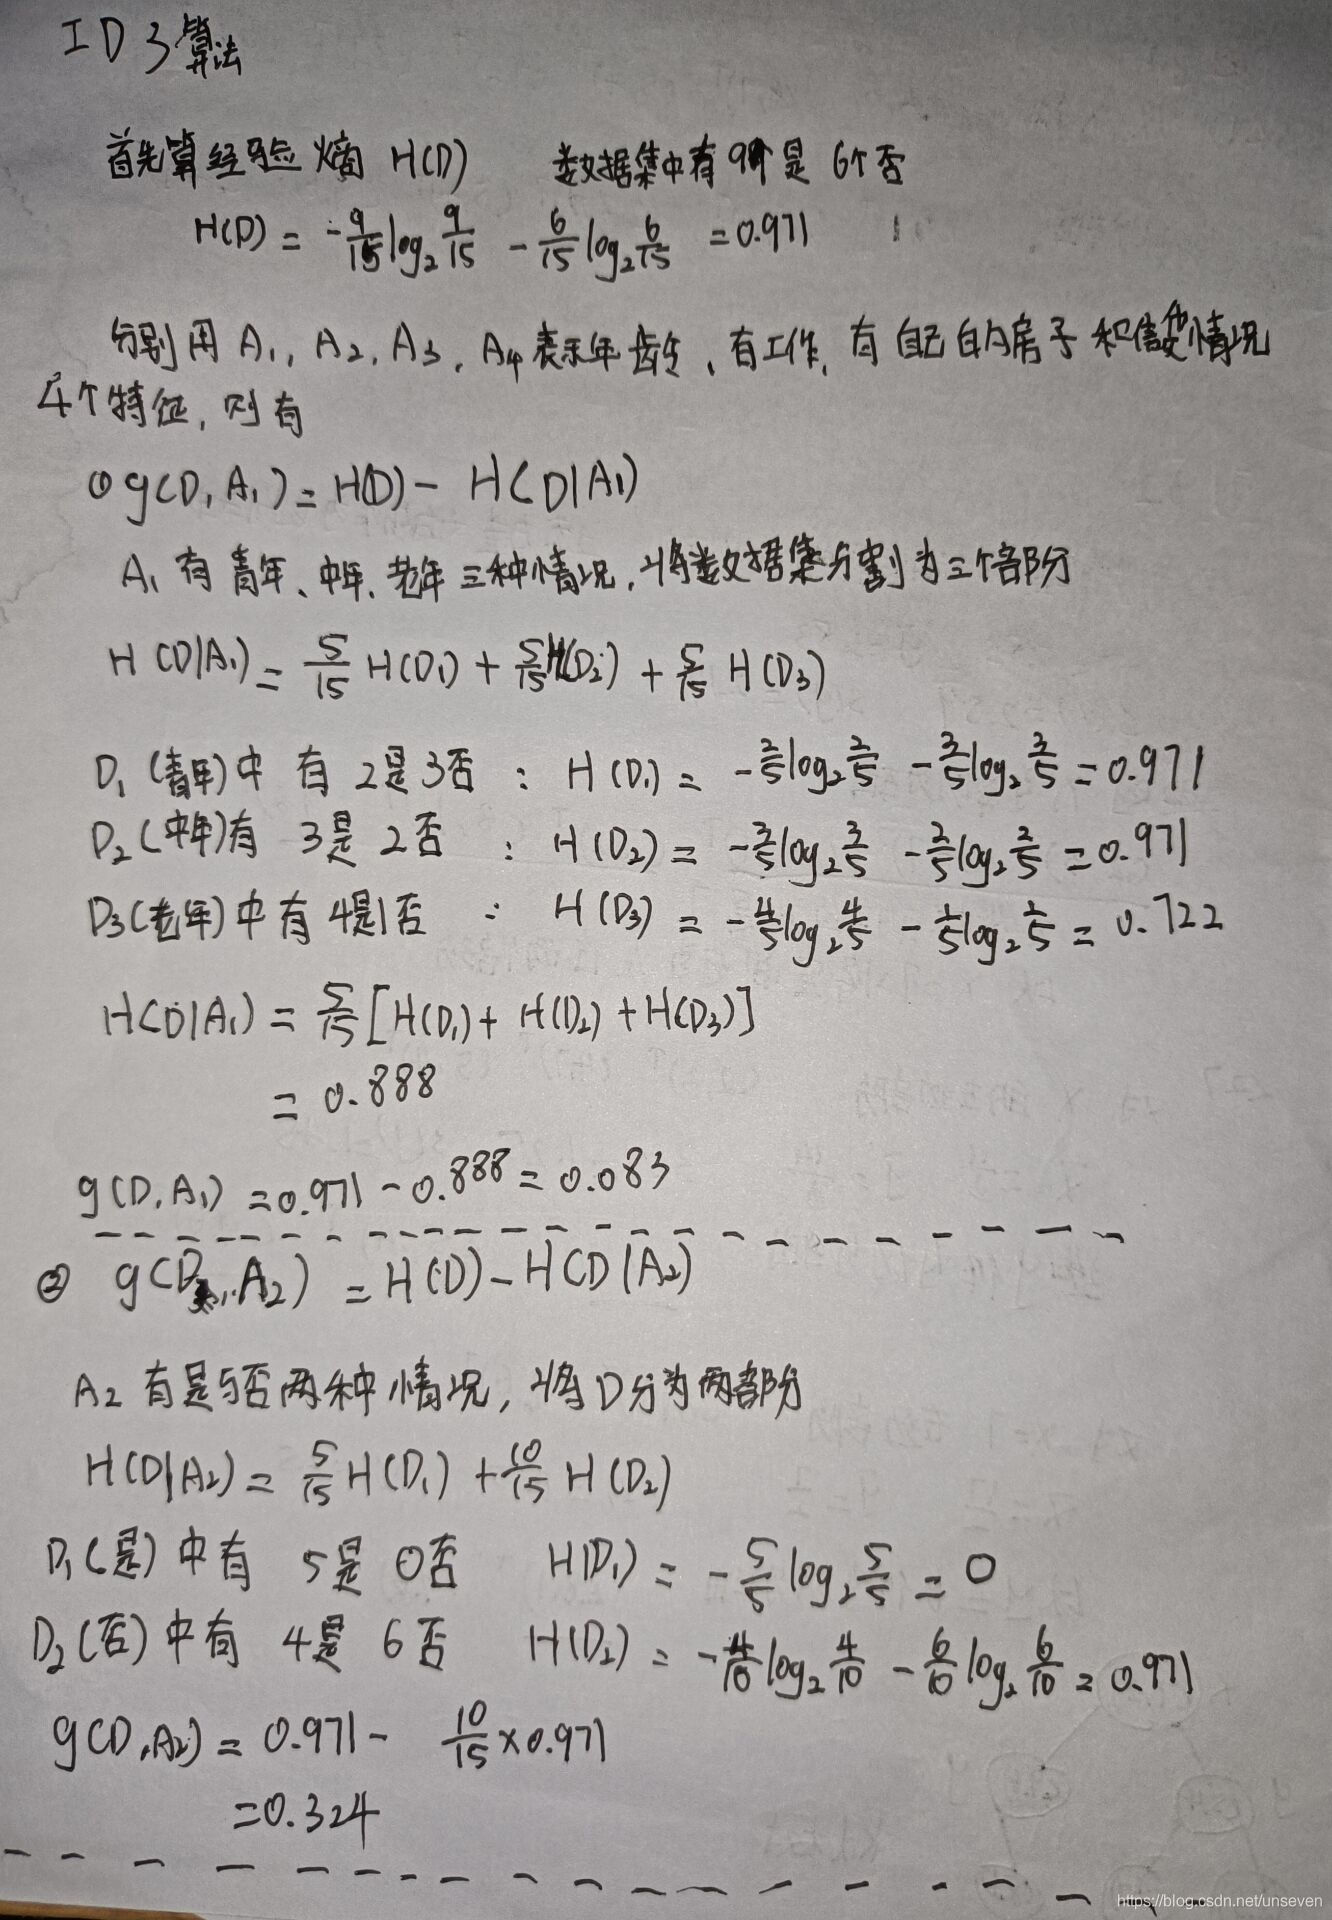 ID3算法
首先算经验熵 H(D) 数据集中有9个是 6个否
H(D) = -9/15 log₂ 9/15 - 6/15 log₂ 6/15 = 0.971
分别用 A₁, A₂, A₃, A₄ 表示年龄、有工作、有自己的房子和信贷情况
4个特征, 则有
① g(D, A₁) = H(D) - H(D|A₁)
A₁ 有青年、中年、老年三种情况, 将数据集分割为三个部分
H(D|A₁) = 5/15 H(D₁) + 5/15 H(D₂) + 5/15 H(D₃)
D₁(青年)中有 2是3否 : H(D₁) = -2/5 log₂ 2/5 - 3/5 log₂ 3/5 = 0.971
D₂(中年)有 3是2否 : H(D₂) = -3/5 log₂ 3/5 - 2/5 log₂ 2/5 = 0.971
D₃(老年)中有4是1否 : H(D₃) = -4/5 log₂ 4/5 - 1/5 log₂ 1/5 = 0.722
H(D|A₁) = 5/15 [H(D₁) + H(D₂) + H(D₃)]
= 0.888
g(D, A₁) = 0.971 - 0.888 = 0.083
② g(D, A₂) = H(D) - H(D|A₂)
A₂ 有是与否两种情况, 将D分为两部分
H(D|A₂) = 5/15 H(D₁) + 10/15 H(D₂)
D₁(是)中有 5是 0否 H(D₁) = -5/5 log₂ 5/5 = 0
D₂(否)中有 4是 6否 H(D₂) = -4/10 log₂ 4/10 - 6/10 log₂ 6/10 = 0.971
g(D, A₂) = 0.971 - 10/15 × 0.971
= 0.324
https://blog.csdn.net/unseven